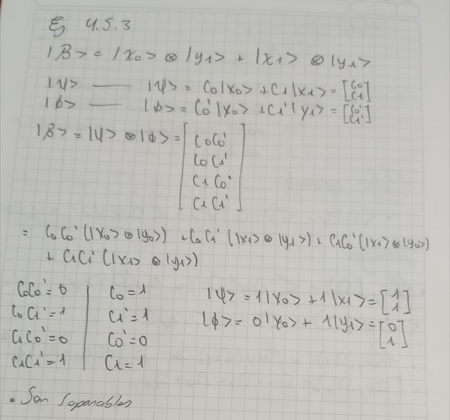 Ej 4.5.3
|B> = |x₀> ⊗ |y₁> + |x₁> ⊗ |y₁>
|ψ> —— |ψ> = C₀|x₀> + C₁|x₁> = [C₀ C₁]
|ϕ> —— |ϕ> = C₀'|x₀> + C₁'|y₁> = [C₀' C₁']
|B> = |ψ> ⊗ |ϕ> = [C₀C₀'
C₀C₁'
C₁C₀'
C₁C₁']
= C₀C₀'(|x₀> ⊗ |y₀>) + C₀C₁'(|x₁> ⊗ |y₁>) + C₁C₀'(|x₁> ⊗ |y₀>)
+ C₁C₁'(|x₁> ⊗ |y₁>)
C₀C₀' = 0 | C₀ = 1 |ψ> = 1|x₀> + 1|x₁> = [1 1]
C₀C₁' = 1 | C₁' = 1 |ϕ> = 0|y₀> + 1|y₁> = [0 1]
C₁C₀' = 0 | C₀' = 0
C₁C₁' = 1 | C₁ = 1
• Son separables